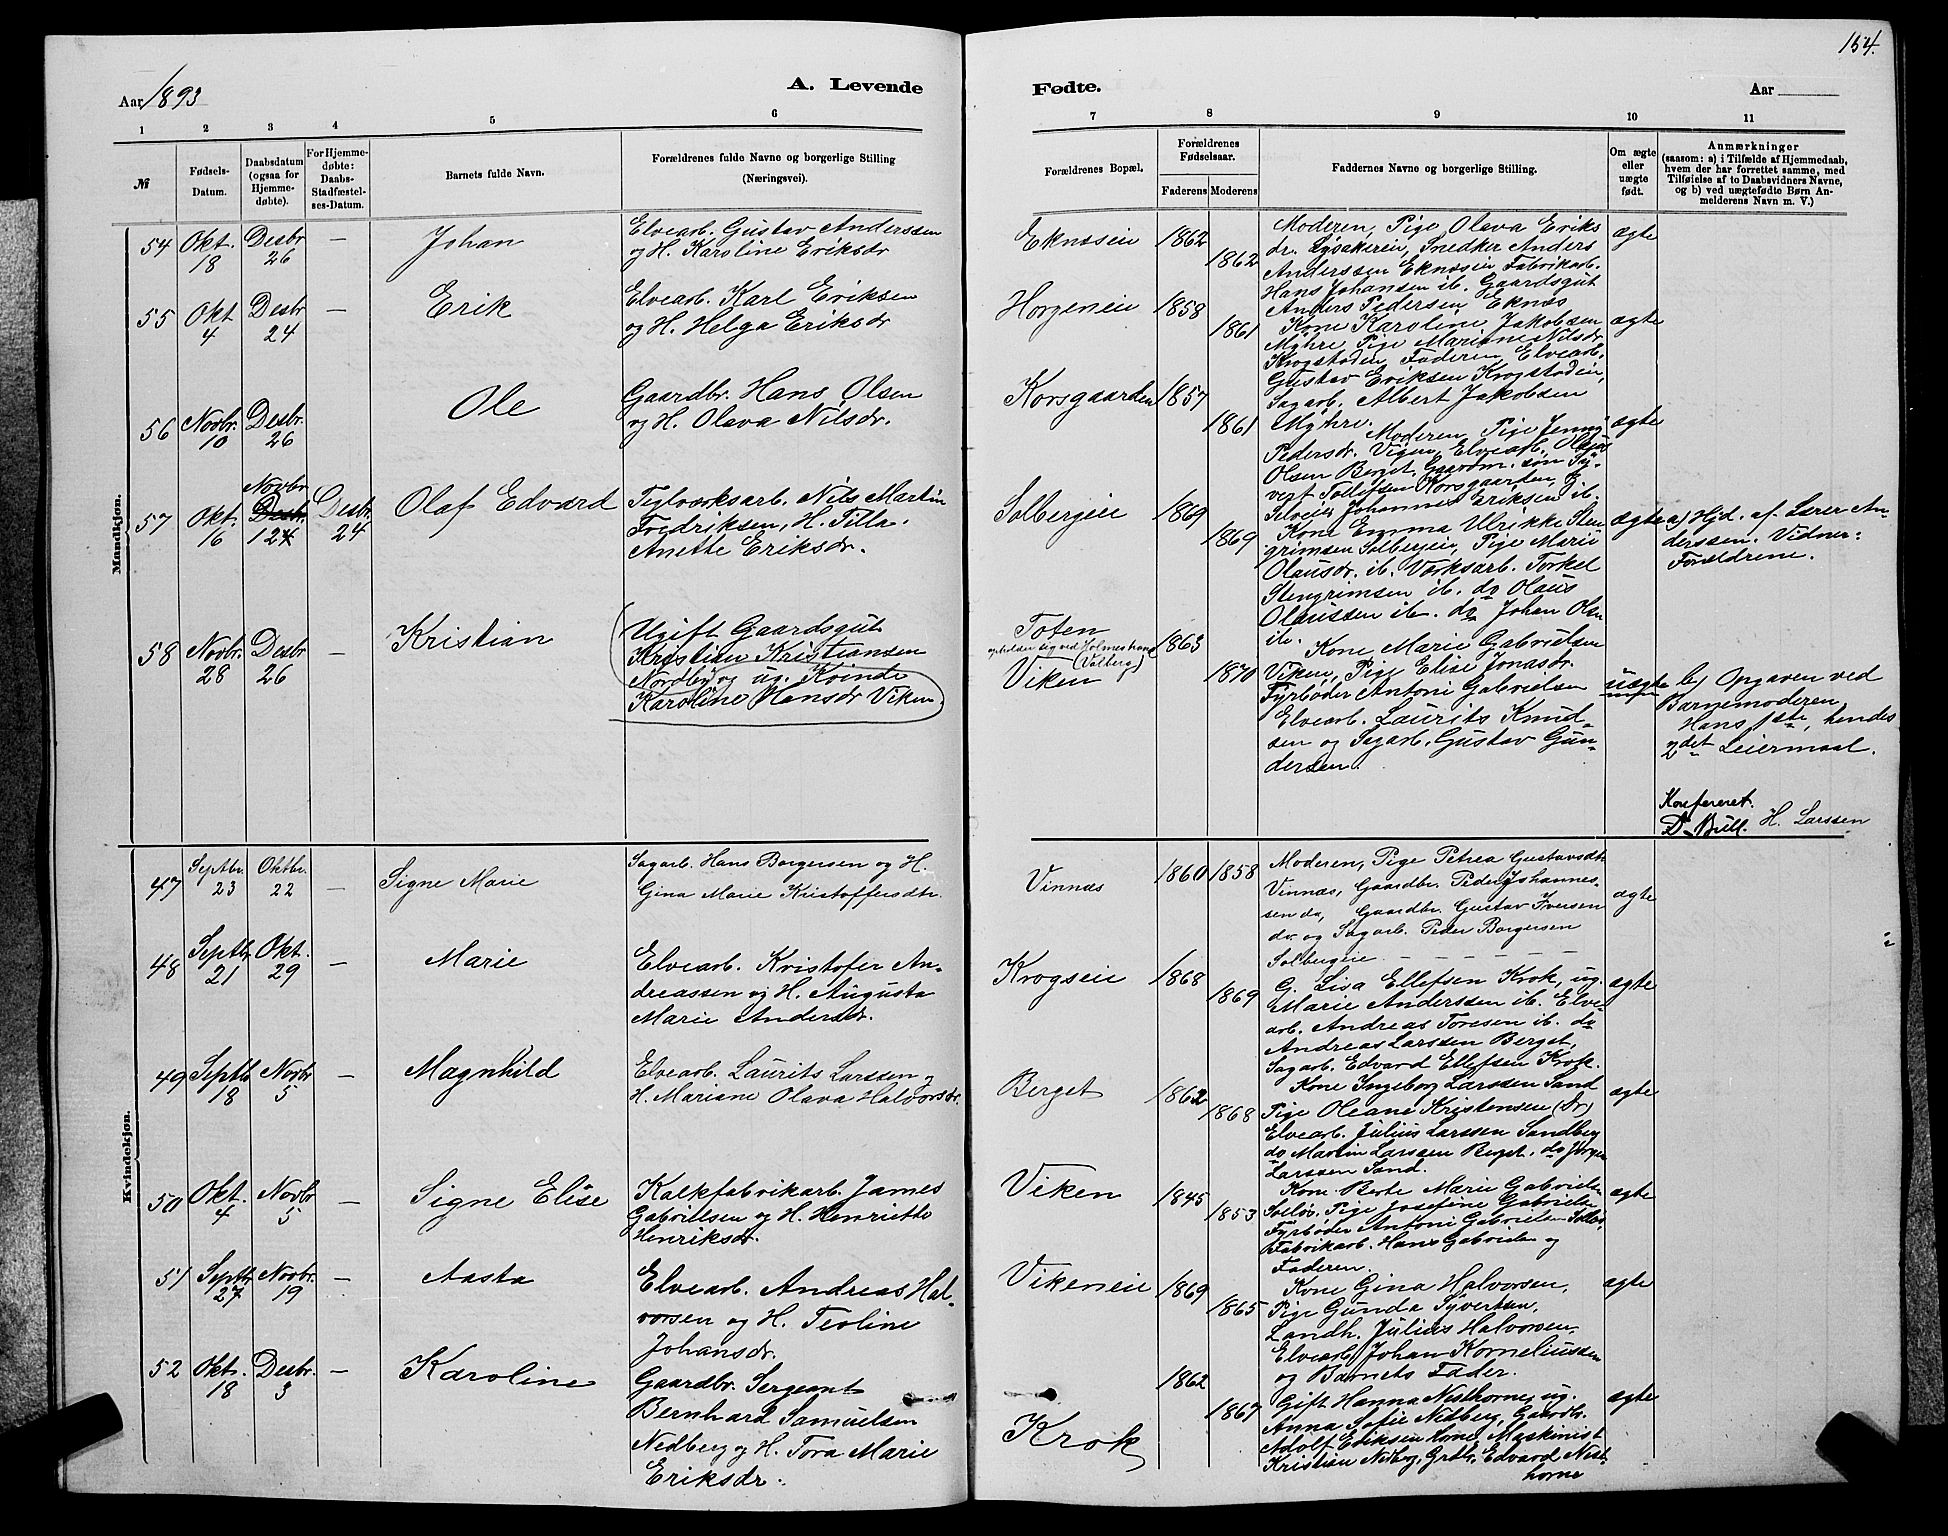 154.
Aar 1893
A. Levende
Fødte.
Aar
1 2 3 4 5 6
7 8 9 10 11
№
Fødsels-
Datum.
Daabsdatum
(ogsaa for
Hjemme-
døbte).
For Hjemme-
døbte:
Daabs-
Stadfæstel-
ses-Datum.
Barnets fulde Navn.
Forældrenes fulde Navne og borgerlige Stilling
(Næringsvei).
Forældrenes Bopæl.
Forældrenes
Fødselsaar.
Faderens Moderens
Faddernes Navne og borgerlige Stilling.
Om ægte
eller
uægte
født.
Anmærkninger
(saasom: a) i Tilfælde af Hjemmedaab,
hvem der har forrettet samme, med
Tilføielse af to Daabsvidners Navne,
og b) ved uægtefødte Børn An-
melderens Navn m. V.)
Mandkjøn.
54 Okt. 18 Desbr. 26 — Johan
Elvearb. Gustav Anderssen
og H. Karoline Eriksdr
Eknæseie 1862 1862
Moderen, Pige Olava Eriks
dr. Lysakereie, Snedker Anders
Anderssen Eknæseie, Fabrikarb.
Hans Johansen ib. Gaardsgut
Anders Pedersen Eknæs
ægte
55 Okt 4 Desbr 24 — Erik
Elvearb. Karl Eriksen
og H. Helga Eriksdr
Horgeneie 1858 1861
Kone Karoline Jakobsen
Myhre Pige Mariane Nilsdr.
Krogstadeie, Faderen, Elvearb.
Gustav Eriksen Krogstadeie,
Sagarb. Albert Jakobsen
Myhre.
ægte
56 Novbr. 10 Desbr. 26 Ole
Gaardbr. Hans Olsen
og H. Olava Nilsdr.
Korsgaarden 1857 1861
Moderen, Pige Jenny
Pedersdr. Vigen, Elvearb. Olaus
Olsen Berget, Gaardm. søn Sy-
vert Tollefsen Korsgaarden, g
Selveier Johannes Eriksen ib.
ægte
57 Okt. 16 Novbr Desbr. 12 Desbr. 24 Olaf Edvard
Teglværksarb. Nils Martin
Fredriksen, H. Tilla
Anette Eriksdr.
Solbergeie 1869 1869
Kone Emma Ulrikke Sten
grimsen Solbergeie, Pige Marie
Olausdr. ib. Værksarb. Torkel
Stengrimsen ib. do Olaus
Olaussen ib. do Johan Olsen
ib.
ægte
a) Hjd. af Lærer An-
derssen. Vidner:
Forældrene.
58 Novbr. 28 Desbr 26 — Kristian
Ugift Gaardsgut
Kristian Kristiansen
Nordby og ug. Kvinde
Karoline Hansdr Viken.
Toten
opholder sig ved Holmestrand
(Valberg)
Viken
1863 1870
Kone Marie Gabrielsen
Viken, Pige Elise Jonasdr.
Fyrbøder Antoni Gabrielsen
Elvearb. Laurits Knud-
sen og Sagarb. Gustav Gun-
dersen.
uægte
b) Opgaven ved
Barnemoderen
Hans 1ste, hendes
2det Leiermaal.
Konfereret.
D. Bull. H. Larssen
Kvindekjøn.
47 Septbr. 23 Oktbr. 22 — Signe Marie
Sagarb. Hans Borgersen og H.
Gina Marie Kristoffersdtr.
Vinnæs 1860 1858
Moderen, Pige Petrea Gustavsdtr
Vinnæs, Gaardbr. Peder Johannes-
sen do, Gaardbr. Gustav Iversen
do. og Sagarb. Peder Borgersen
Solbergeie. — — — — —
ægte
48 Septbr. 21 Okt. 29 — Marie
Elvearb. Kristofer An-
dreassen og H. Augusta
Marie Andersdr.
Krogseie 1868 1869
G. Lisa Ellefsen Krok, ug.
Marie Anderssen ib. Elve-
arb. Andreas Toresen ib. do
Andreas Larssen Berget,
Sagarb. Edvard Ellefsen Krok.
ægte
49 Septbr 18 Novbr 5 — Magnhild
Elvearb. Laurits Larssen og
H. Mariane Olava Halvorsdr.
Berget 1862 1868
Kone Ingeborg Larssen Sand
Pige Oleane Kristensen (Dr)
Elvearb. Julius Larssen Sandberg
do Martin Larssen Berget, do Jørgen
Larssen Sand.
ægte
50 Okt. 4 Novbr 5 — Signe Elise
Kalkfabrikarb. James
Gabrielsen og H. Henriette
Henriksdr.
Viken 1845 1853
Kone Berte Marie Gabrielsen
Solløs. Pige Josefine Gabrielsen
Fyrbøder Antoni Gabrielsen Solløs,
Fabrikarb. Hans Gabrielsen og
Faderen.
ægte
51 Septbr 27 Novbr. 19 — Aasta
Elvearb. Andreas Hal-
vorsen og H. Teoline
Johansdr.
Vikeneie 1869 1865
Kone Gina Halvorsen,
Pige Gunda Syvertsen,
Landh. Julius Halvorsen,
Elvearb. Johan Korneliussen
og Barnets Fader.
ægte
52 Okt. 18 Desbr. 3 — Karoline
Gaardbr. Sergeant
Bernhard Samuelsen
Nedberg og H. Tora Marie
Eriksdr.
Krok 1862 1867
Gift Hanna Nesthorne, ug.
Anna Sofie Nedberg, Gaardbr.
Adolf Eriksen Horne, Maskinist
Kristian Nedberg, Grdbr. Edvard Nest-
horne
ægte